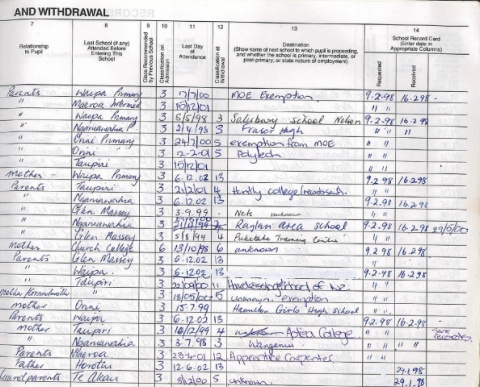 AND WITHDRAWAL
7 8 9 10 11 12 13 14
Relationship to Pupil
Last School (if any) Attended Before Entering This School
Class Recommended by Previous School
Classification on Admission
Last Day of Attendance
Classification at Withdrawal
Destination (Show name of next school to which pupil is proceeding, and whether the school is primary, intermediate, or post-primary, or state nature of employment)
School Record Card (Enter date in Appropriate Columns)
Requested Received
Parents Waipa Primary 3 17/7/00 MOE Exemption. 9.2.98 16.2.98
" Maeroa Intermed 3 10/12/01 " "
" Waipa Primary 3 5/5/98 3 Salisbury school Nelson 9.2.98 16.2.98
" Ngaruawahia 3 2/4/98 3 Fraser High " " "
" Orini Primary 3 24/7/00 5 exemption from MOE " "
" Orini 3 2-2-01 5 Polytech " "
" Taupiri 3 10/12/01 " "
mother Waipa Primary 3 6.12.02 13 9.2.98 16.2.98
Parents Taupiri 3 21/2/01 4 Huntly college " "
" Ngaruawahia 3 6.12.02 13 " "
" Glen Massey 3 3.9.99 unknown " "
" Ngaruawahia 3 Raglan Area school 9.2.98 16.2.98
" Glen Massey 3 5/8/99 4 Pukekohe Training Centre " "
mother Church College 6 13/10/98 6 unknown 9.2.98 16.2.98
Parents Glen Massey 3 6.12.02 13 " "
" Waipa 3 6.12.02 13 9.2.98 16.2.98
" Taupiri 3 22/09/00 11 of NZ " "
mother/Grandmother " 3 18/05/00 5 exemption " "
mother Orini 3 15.7.99 Hamilton Girls High school " "
Parents Waipa 3 6.12.02 13 9.2.98 16.2.98
mother Taupiri 3 10/12/99 4 Aotea College
" Ngaruawahia 3 3.7.98 3 Wanganui " " "
Parents Maeroa 3 23.4.01 12 Apprentice Carpenters " "
Father Horotiu 3 12.6.02 13 29.1.98
Grandparents Te Akau 3 5 unknown 29.1.98